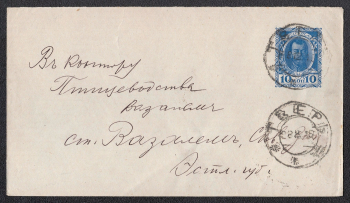 Въ контору
Птицеводства
Вазалемъ
ст. Вазалемъ,
Эстл. губ.
10 10
ТВЕРЬ